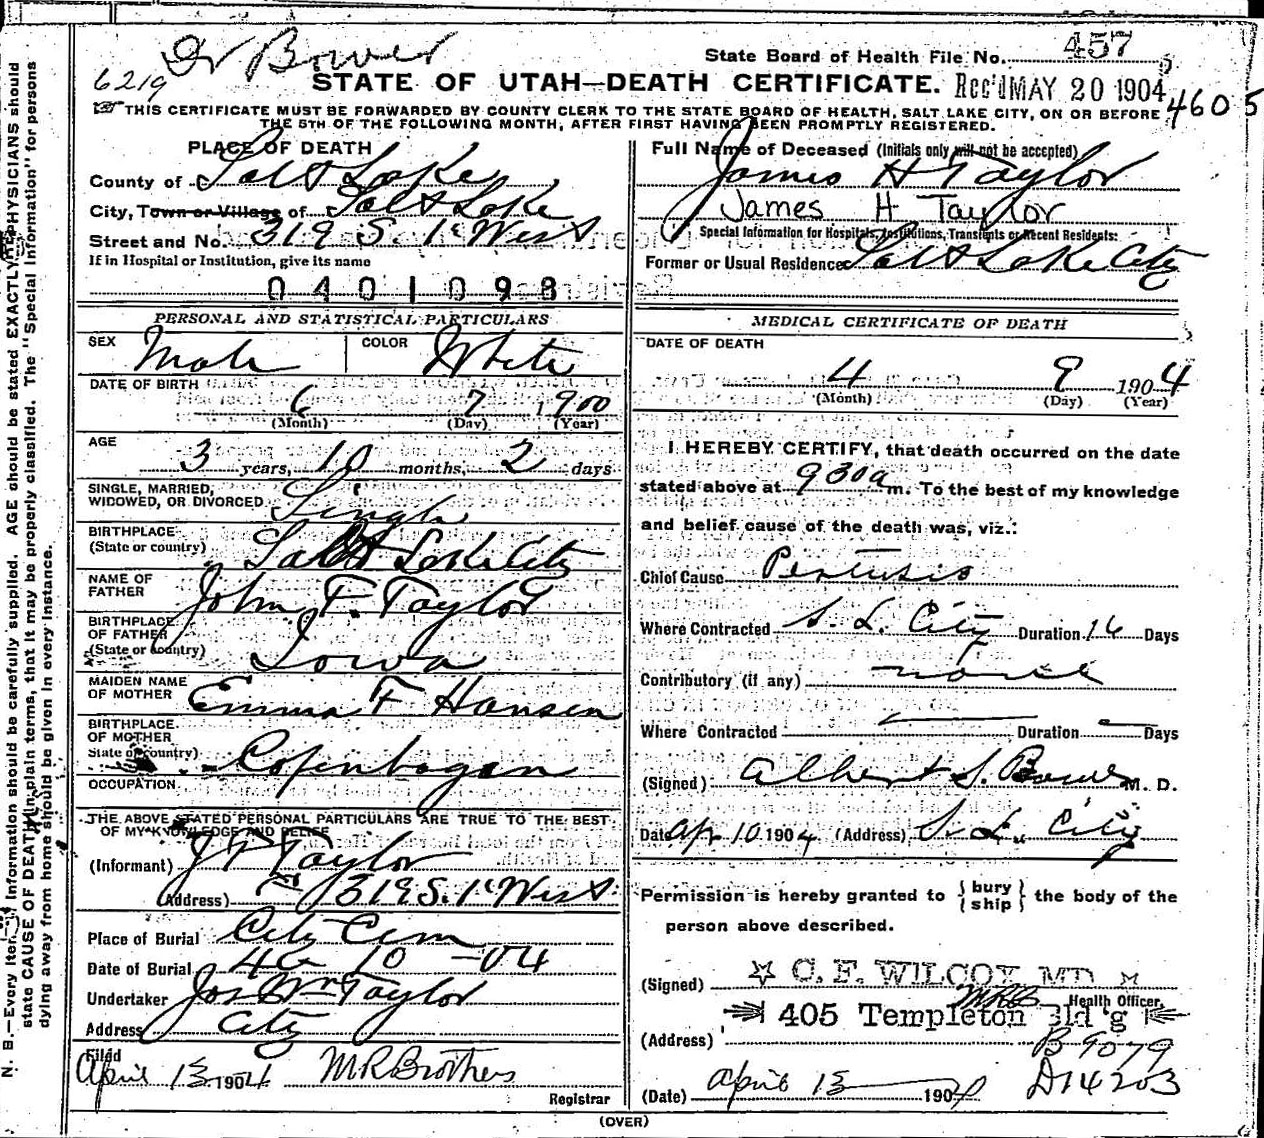 Dr Bower
State Board of Health File No. 457
6219
STATE OF UTAH—DEATH CERTIFICATE. Rec'd MAY 20 1904
4605
THIS CERTIFICATE MUST BE FORWARDED BY COUNTY CLERK TO THE STATE BOARD OF HEALTH, SALT LAKE CITY, ON OR BEFORE
THE 5TH OF THE FOLLOWING MONTH, AFTER FIRST HAVING BEEN PROMPTLY REGISTERED.
PLACE OF DEATH
County of Salt Lake
City, Town or Village of Salt Lake
Street and No. 319 S. 1st West
If in Hospital or Institution, give its name
0401098
Full Name of Deceased (Initials only will not be accepted)
James H Taylor
James H Taylor
Special Information for Hospitals, Institutions, Transients or Recent Residents:
Former or Usual Residence Salt Lake City
PERSONAL AND STATISTICAL PARTICULARS
SEX Male COLOR White
DATE OF BIRTH
6 7 1900
(Month) (Day) (Year)
AGE
3 years, 10 months, 2 days
SINGLE, MARRIED,
WIDOWED, OR DIVORCED Single
BIRTHPLACE
(State or country) Salt Lake City
NAME OF
FATHER John F. Taylor
BIRTHPLACE
OF FATHER
(State or country) Iowa
MAIDEN NAME
OF MOTHER Emma F Hansen
BIRTHPLACE
OF MOTHER
State or country) Copenhagen
OCCUPATION
THE ABOVE STATED PERSONAL PARTICULARS ARE TRUE TO THE BEST
OF MY KNOWLEDGE AND BELIEF
(Informant) J F Taylor
(Address) 319 S. 1st West
Place of Burial City Cem
Date of Burial 4 10 -04
Undertaker Jos Wm Taylor
Address City
Filed
April 13 1904 M R Brothers
Registrar
MEDICAL CERTIFICATE OF DEATH
DATE OF DEATH
4 9 1904
(Month) (Day) (Year)
I HEREBY CERTIFY, that death occurred on the date
stated above at 9 30 a m. To the best of my knowledge
and belief cause of the death was, viz.:
Chief Cause Pertusis
Where Contracted S. L. City Duration 16 Days
Contributory (if any) none
Where Contracted Duration Days
(Signed) Albert S. Bower M. D.
Date Apr 10 1904 (Address) S. L. City
Permission is hereby granted to {bury ship} the body of the
person above described.
(Signed) C. F. WILCOX, MD
MRB Health Officer.
405 Templeton Bld'g
(Address)
B 9079
D14203
(Date) April 13 1904
(OVER)
N. B.—Every item of information should be carefully supplied. AGE should be stated EXACTLY. PHYSICIANS should
state CAUSE OF DEATH in plain terms, that it may be properly classified. The "Special Information" for persons
dying away from home should be given in every instance.